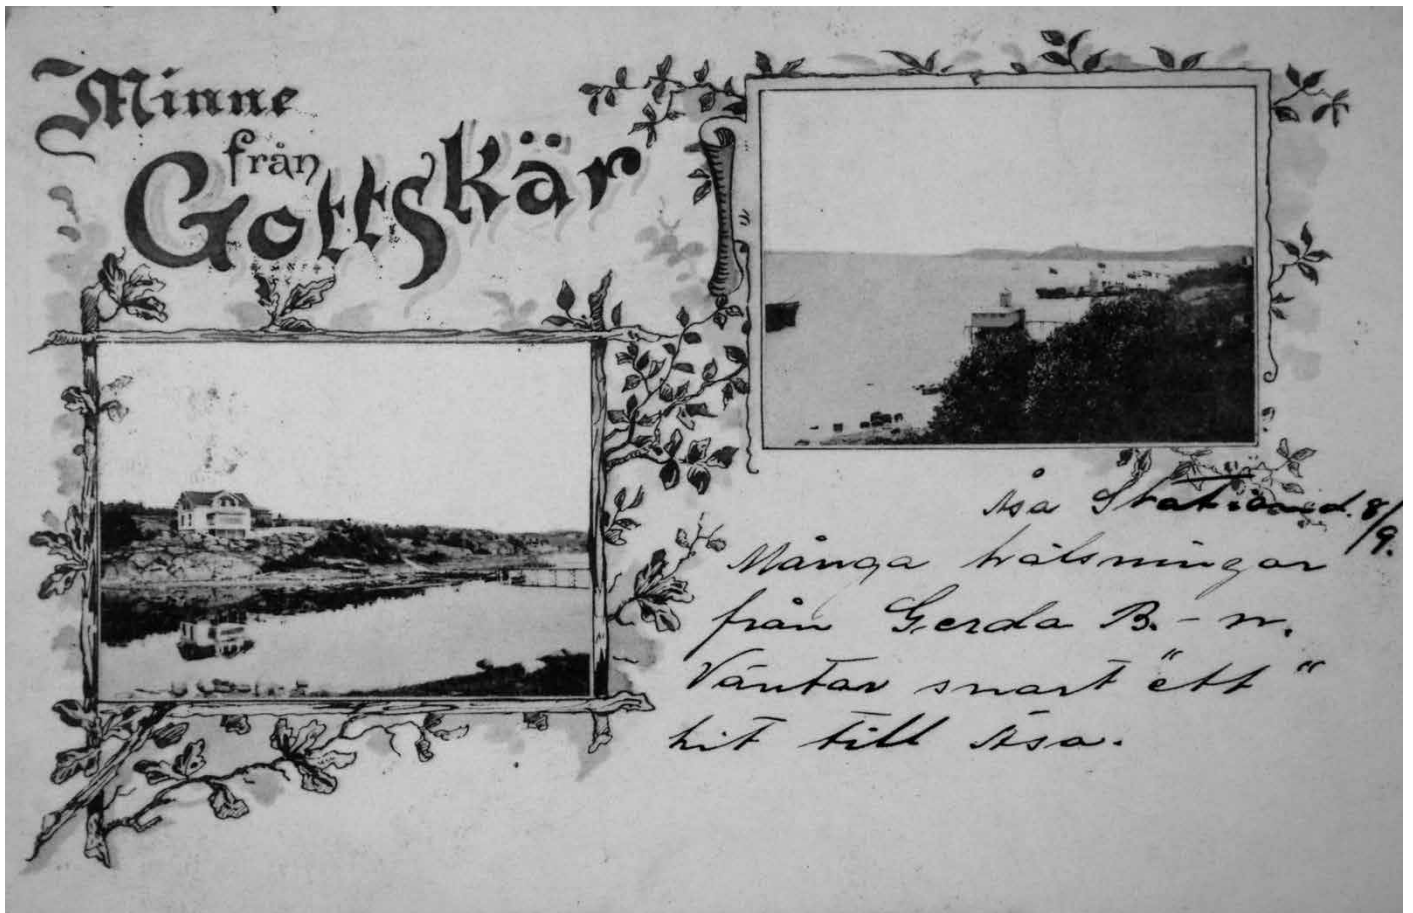 Minne
från
Gottskär
Åsa Station d. 8/9.
Många hälsningar
från Gerda B.-n.
Väntar snart "ett"
hit till Åsa.